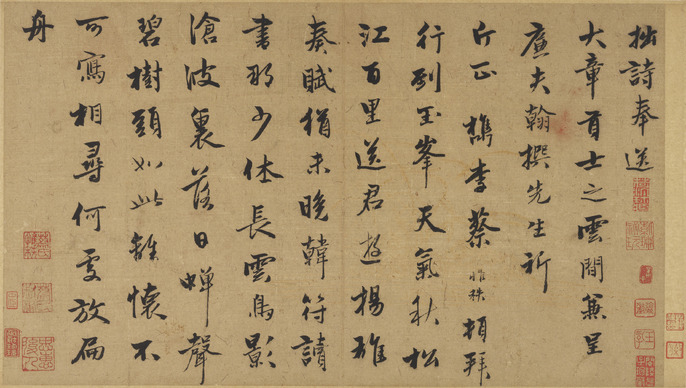 拙詩奉送
大章貢士之雲間兼呈
廉夫翰撰先生祈
斤正檇李蔡頓拜
行到玉峯天氣秋松
江百里送君遊揚雄
奏賦猶未晚韓符讀
書那少休長雲鳥影
滄波裏落日蟬聲
碧樹頭如此離懷不
可寫相尋何處放扁
舟